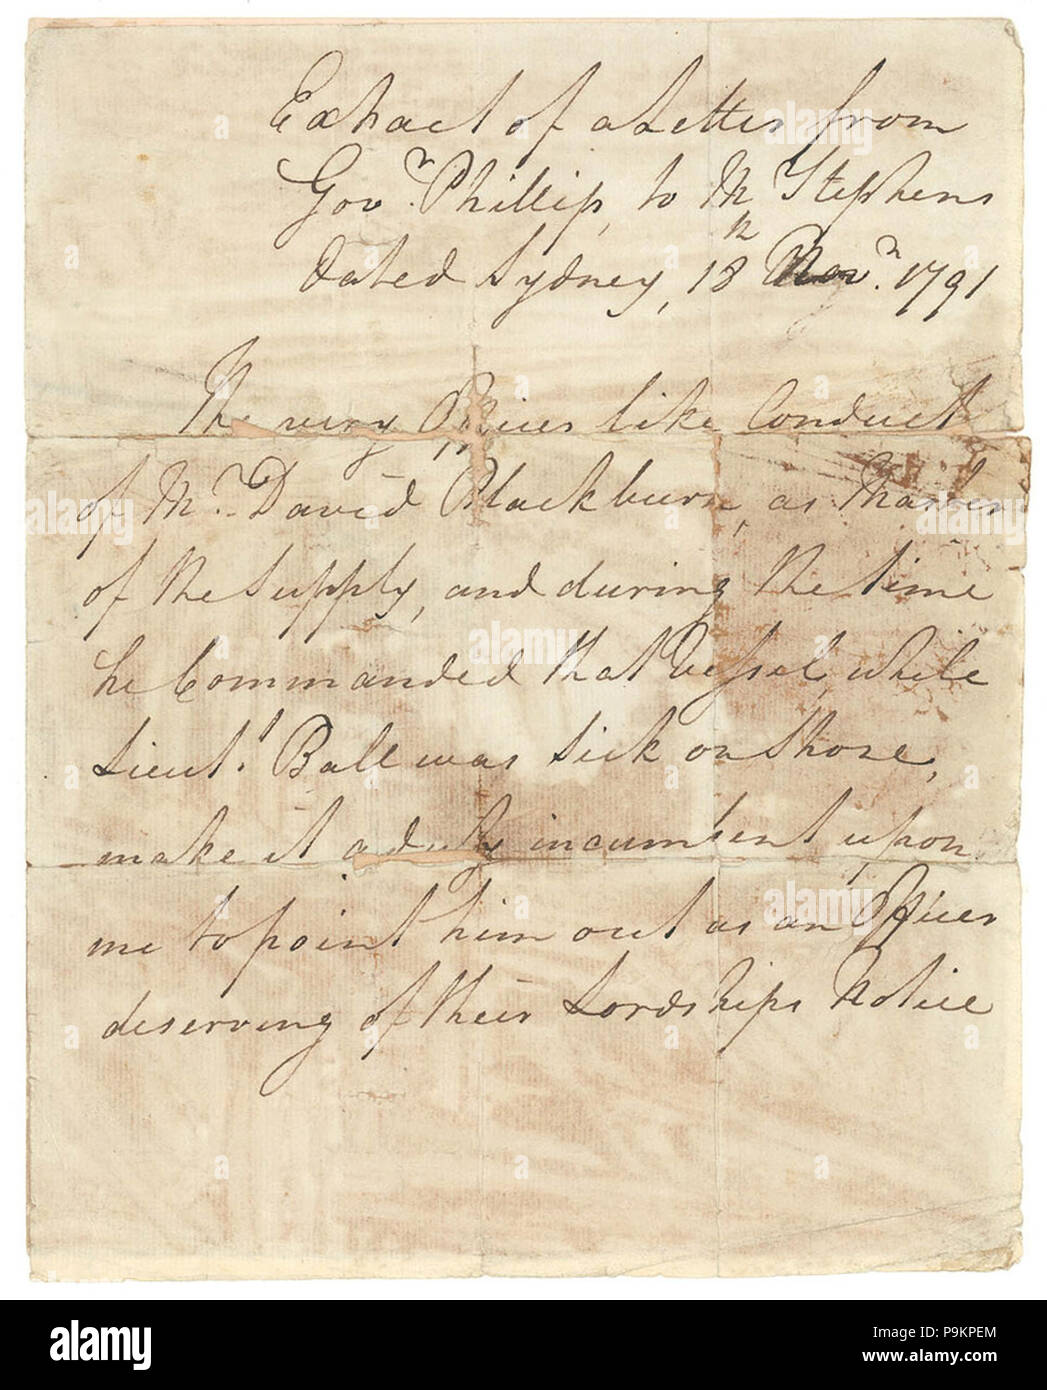 Extract of a Letter from
Govr. Phillip, to Mr Stephens
dated Sydney, 18th Novr. 1791
The very Officer like Conduct
of Mr. David Blackburn, as Master
of the Supply, and during the time
he Commanded that Vessel, while
Lieut. Ball was sick on Shore,
make it a duty incumbent upon
me to point him out as an Officer
deserving of their Lordships Notice
alamy
Image ID: P9KPEM
www.alamy.com